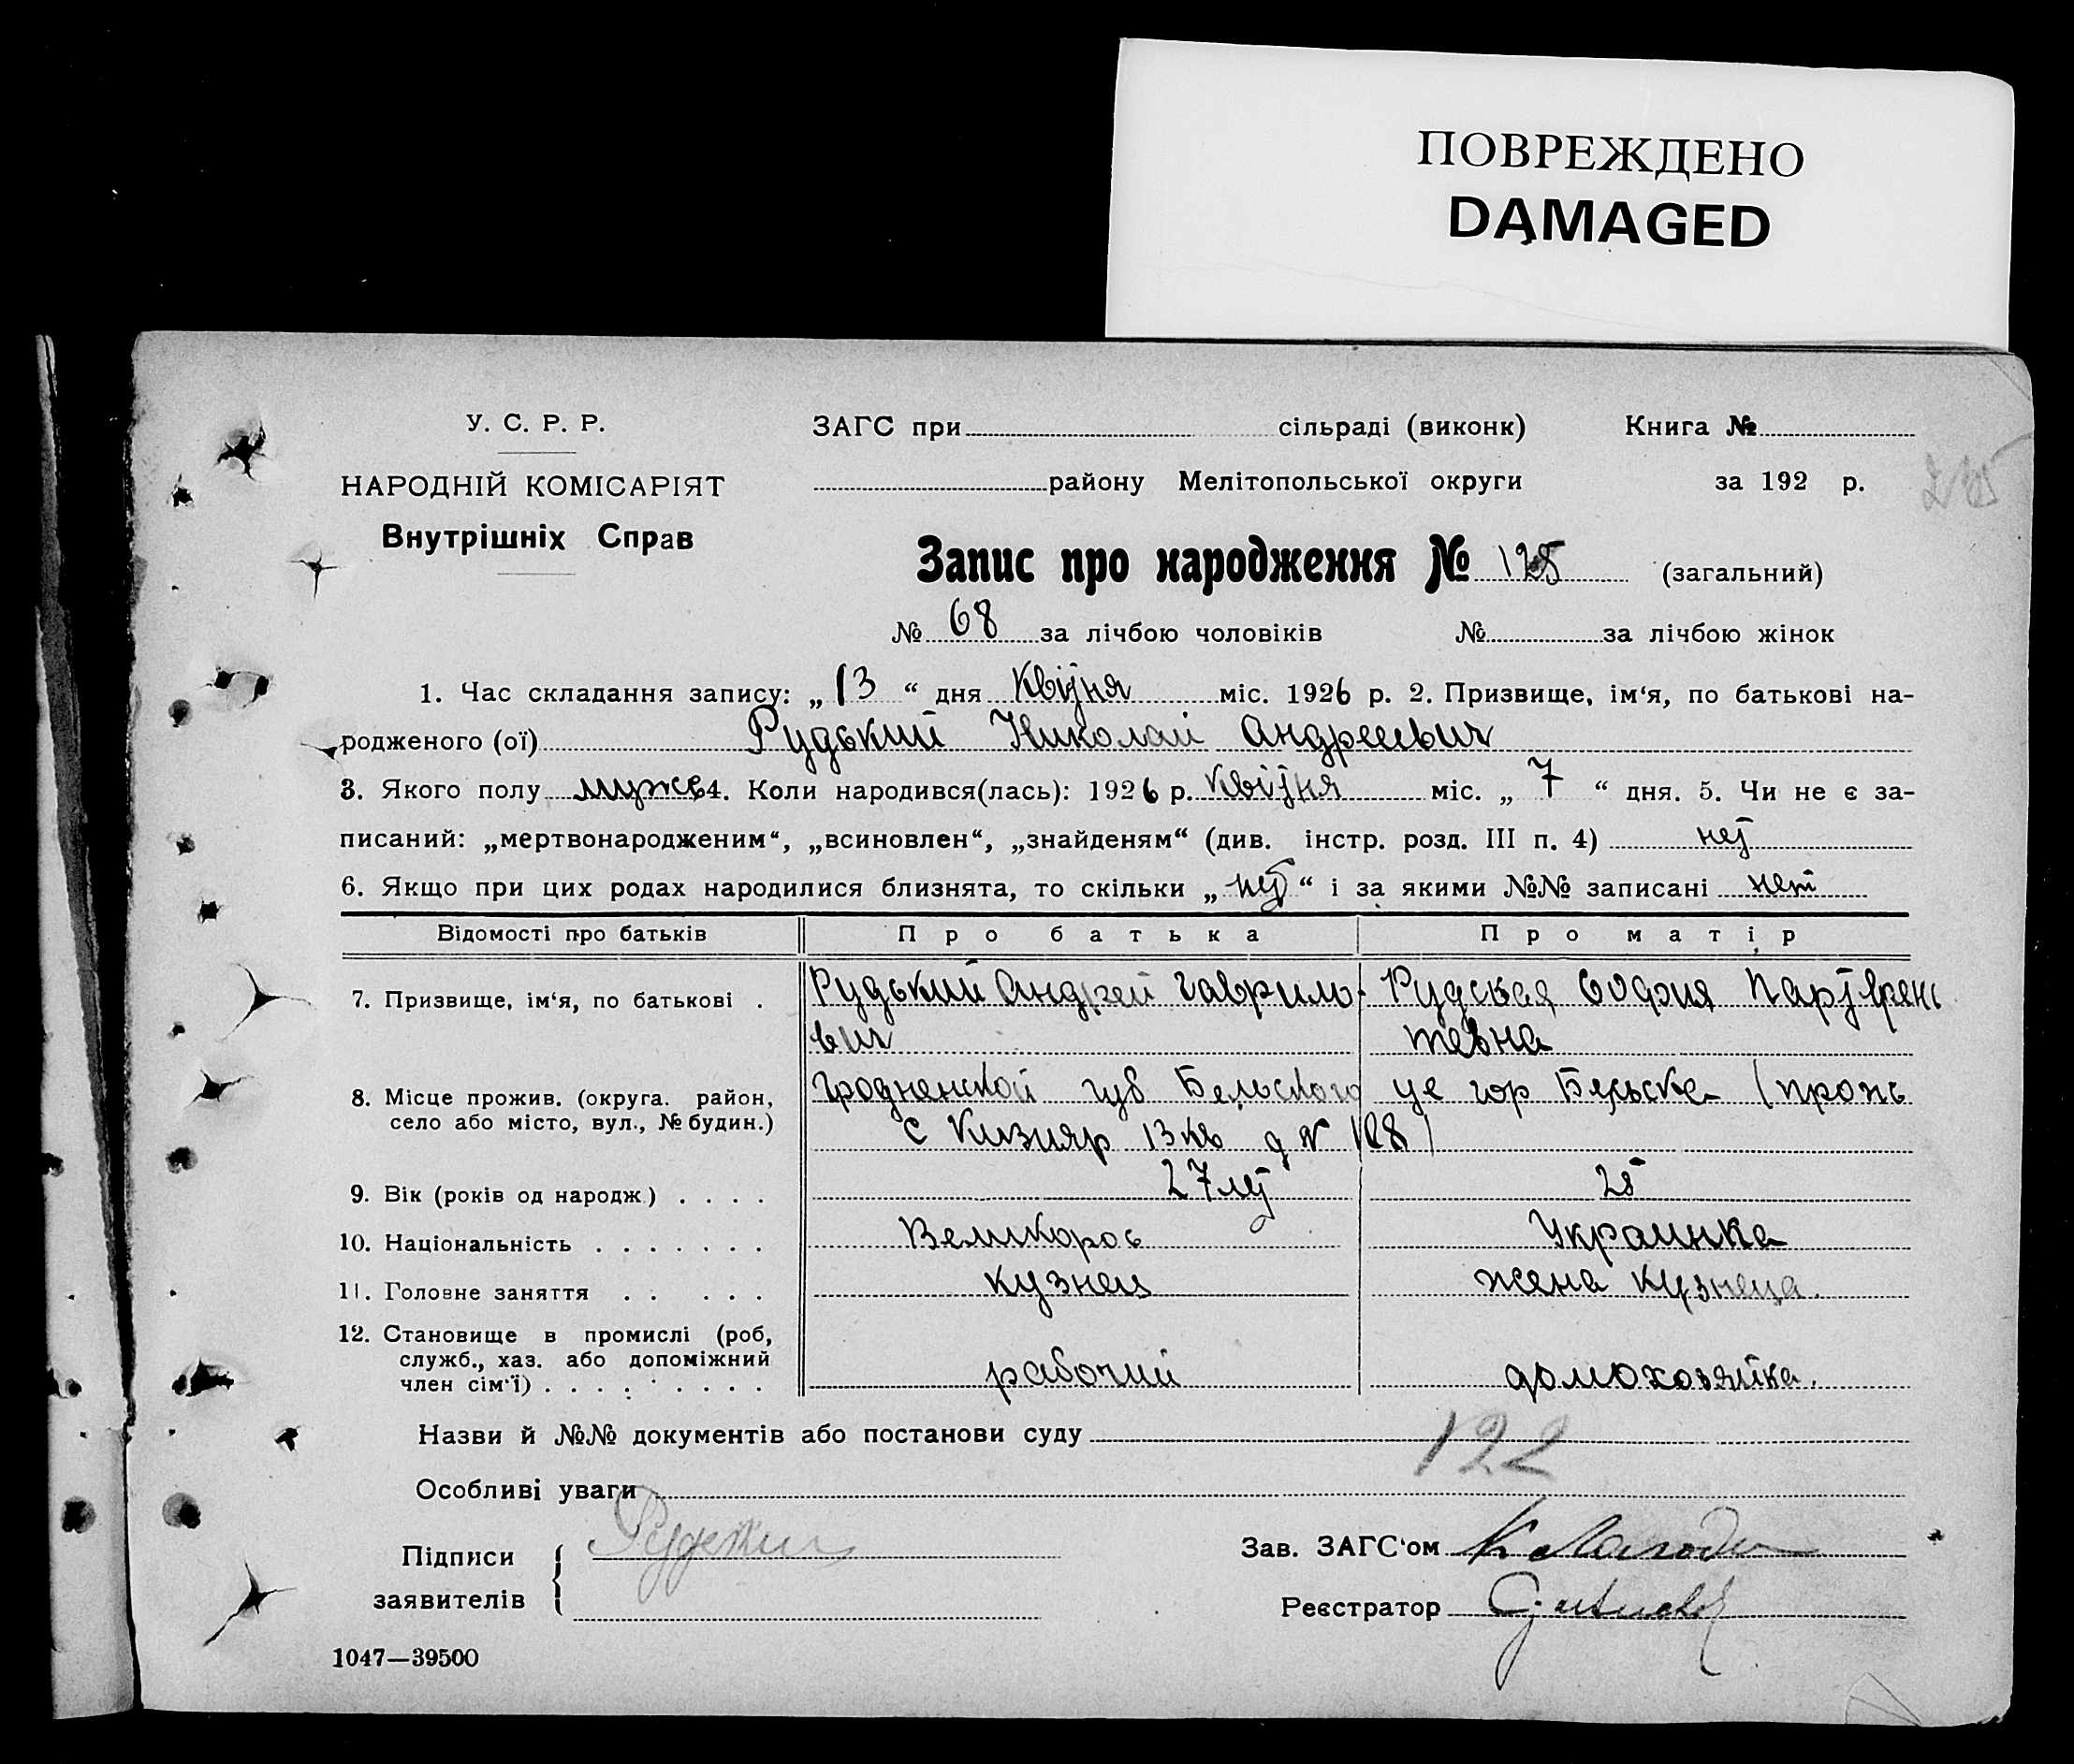 ПОВРЕЖДЕНО
DAMAGED
У. С. Р. Р.
НАРОДНІЙ КОМІСАРІЯТ
Внутрішніх Справ
ЗАГС при сільраді (виконк) Книга №
району Мелітопольської округи за 192 р.
Запис про народження № 125 (загальний)
№ 68 за лічбою чоловіків № за лічбою жінок
1. Час складання запису: „ 13 “ дня квітня міс. 1926 р. 2. Призвище, ім‘я, по батькові на-
родженого (ої) Рудський Николай Андреевич
3. Якого полу мужс 4. Коли народився(лась): 1926 р. квітня міс. „ 7 “ дня. 5. Чи не є за-
писаний: „мертвонародженим“, „всиновлен“, „знайденям“ (див. інстр. розд. III п. 4) нет
6. Якщо при цих родах народилися близнята, то скільки „ нет “ і за якими №№ записані нет
Відомості про батьків Про батька Про матір
7. Призвище, ім‘я, по батькові . Рудський Андрей Гаврило- Рудская София
вич тевна
8. Місце прожив. (округа. район, Гродненской губ Бельского уе гор Бельска (прож
село або місто, вул., № будин.) с Кизияр 13 кв д № 188)
9. Вік (років од народж) . . . . 27 лет 25
10. Національність . . . . . . . Великорос Украинка
11. Головне заняття . . . . . кузнец жена кузнеца.
12. Становище в промислі (роб,
служб., хаз. або допоміжний
член сім‘ї) . . . . . . . . . рабочий домохозяйка.
Назви й №№ документів або постанови суду
122
Особливі уваги
Підписи Рудский
заявителів
Зав. ЗАГС‘ом
Реєстратор
1047—39500